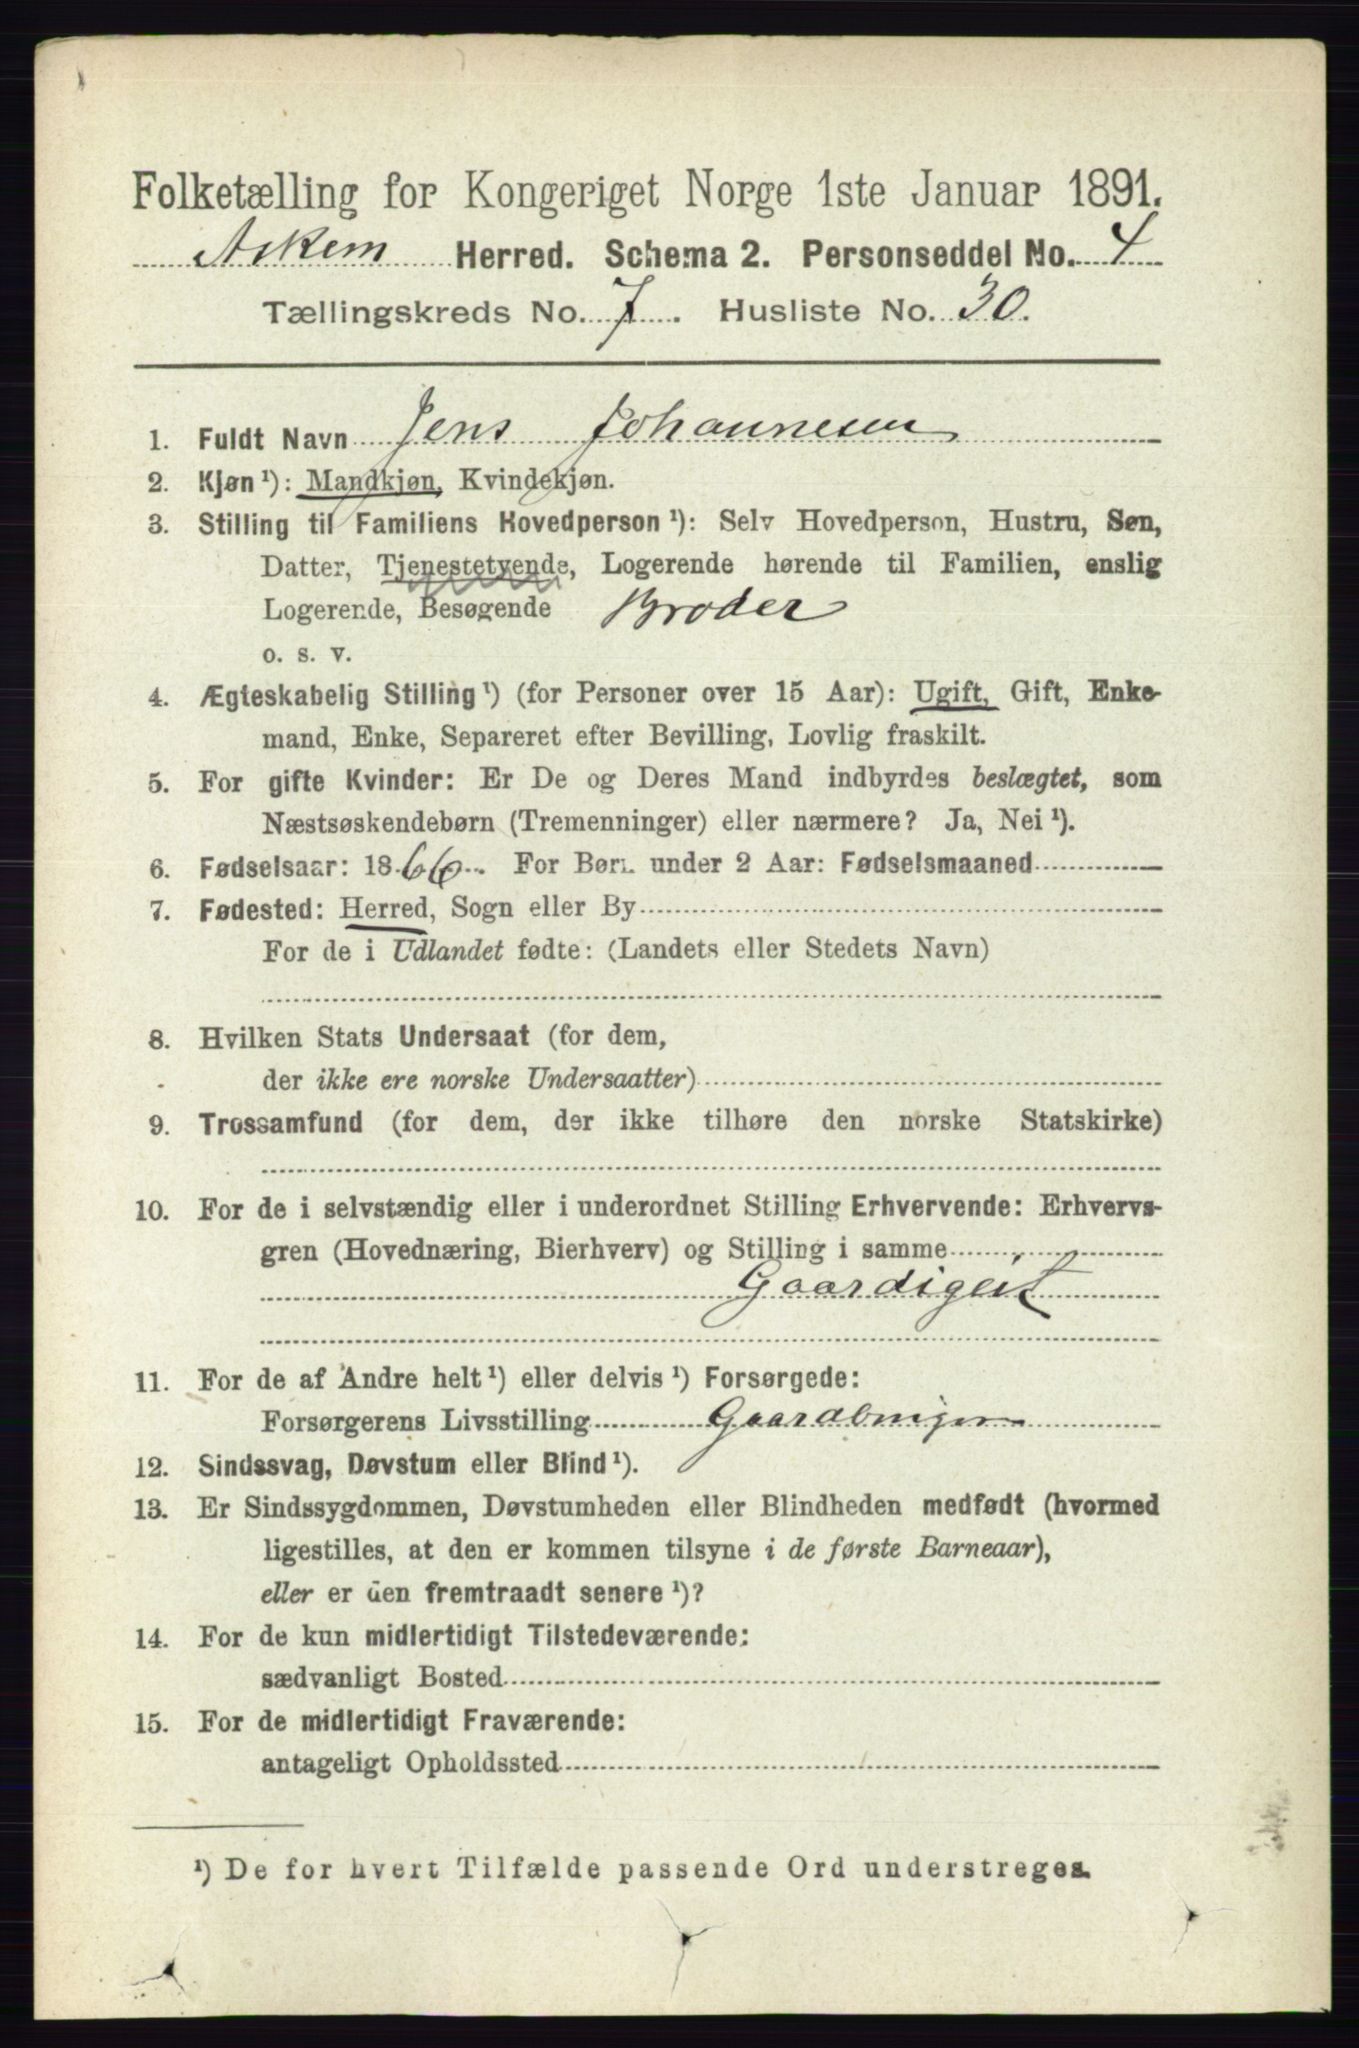 Folketælling for Kongeriget Norge 1ste Januar 1891.
Askem Herred. Schema 2. Personseddel No. 4
Tællingskreds No. 7. Husliste No. 30.
1. Fuldt Navn Jens Johannesen
2. Kjøn ¹): Mandkjøn, Kvindekjøn.
3. Stilling til Familiens Hovedperson ¹): Selv Hovedperson, Hustru, Søn,
Datter, Tjenestetyende, Logerende hørende til Familien, enslig
Logerende, Besøgende Broder
o. s. v.
4. Ægteskabelig Stilling ¹) (for Personer over 15 Aar): Ugift, Gift, Enke-
mand, Enke, Separeret efter Bevilling, Lovlig fraskilt.
5. For gifte Kvinder: Er De og Deres Mand indbyrdes beslægtet, som
Næstsøskendebørn (Tremenninger) eller nærmere? Ja, Nei ¹).
6. Fødselsaar: 1866. For Børn under 2 Aar: Fødselsmaaned
7. Fødested: Herred, Sogn eller By
For de i Udlandet fødte: (Landets eller Stedets Navn)
8. Hvilken Stats Undersaat (for dem,
der ikke ere norske Undersaatter)
9. Trossamfund (for dem, der ikke tilhøre den norske Statskirke)
10. For de i selvstændig eller i underordnet Stilling Erhvervende: Erhvervs-
gren (Hovednæring, Bierhverv) og Stilling i samme
11. For de af Andre helt ¹) eller delvis ¹) Forsørgede:
Forsørgerens Livsstilling
12. Sindssvag, Døvstum eller Blind ¹).
13. Er Sindssygdommen, Døvstumheden eller Blindheden medfødt (hvormed
ligestilles, at den er kommen tilsyne i de første Barneaar),
eller er den fremtraadt senere ¹)?
14. For de kun midlertidigt Tilstedeværende:
sædvanligt Bosted
15. For de midlertidigt Fraværende:
antageligt Opholdssted
¹) De for hvert Tilfælde passende Ord understreges.